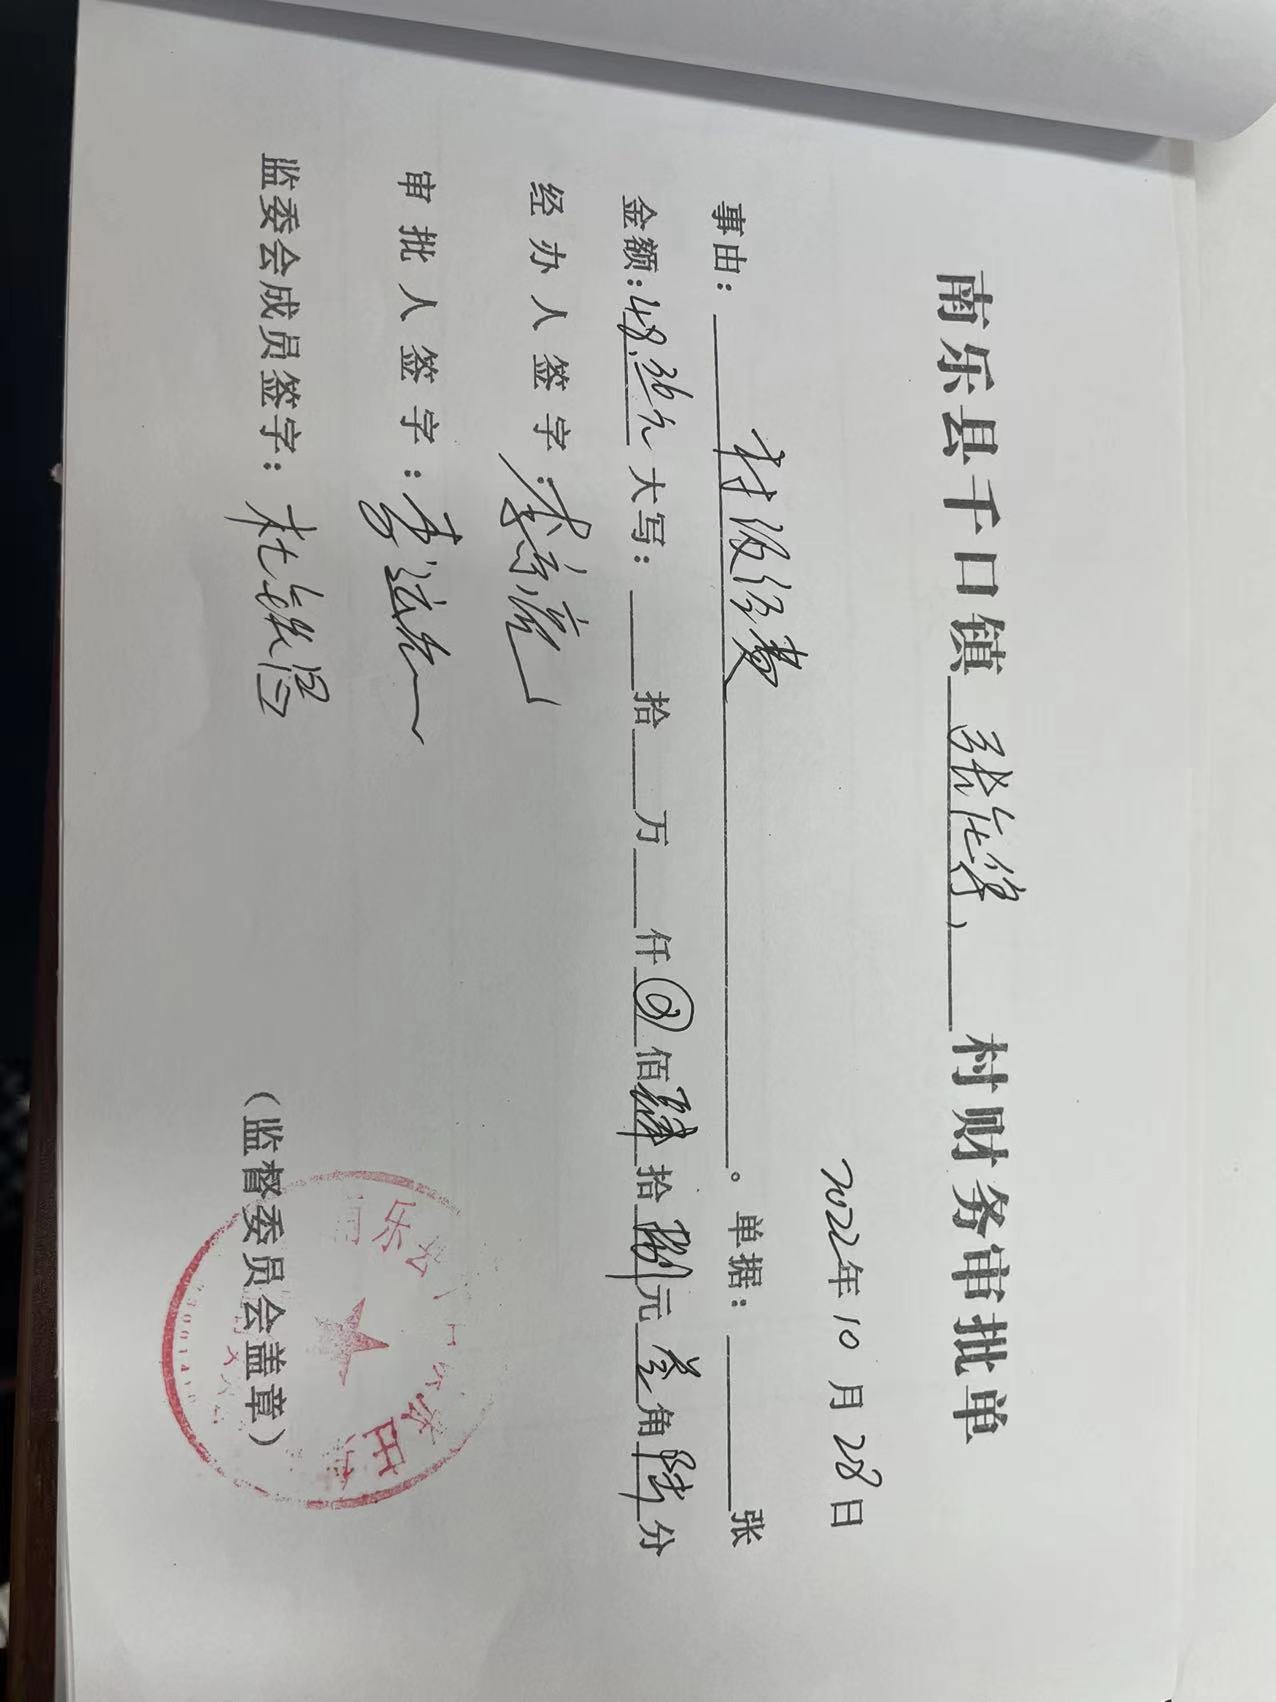 南乐县千口镇 张佐犟 村财务审批单
2022年10月28日
事由: 村级经费 。单据: 张
金额:48.36元 大写: 拾 万 仟 ⊗ 佰 肆 拾 捌 元 叁 角 陆 分
经办人签字:
审批人签字: 李
监委会成员签字: 杜银
(监督委员会盖章)